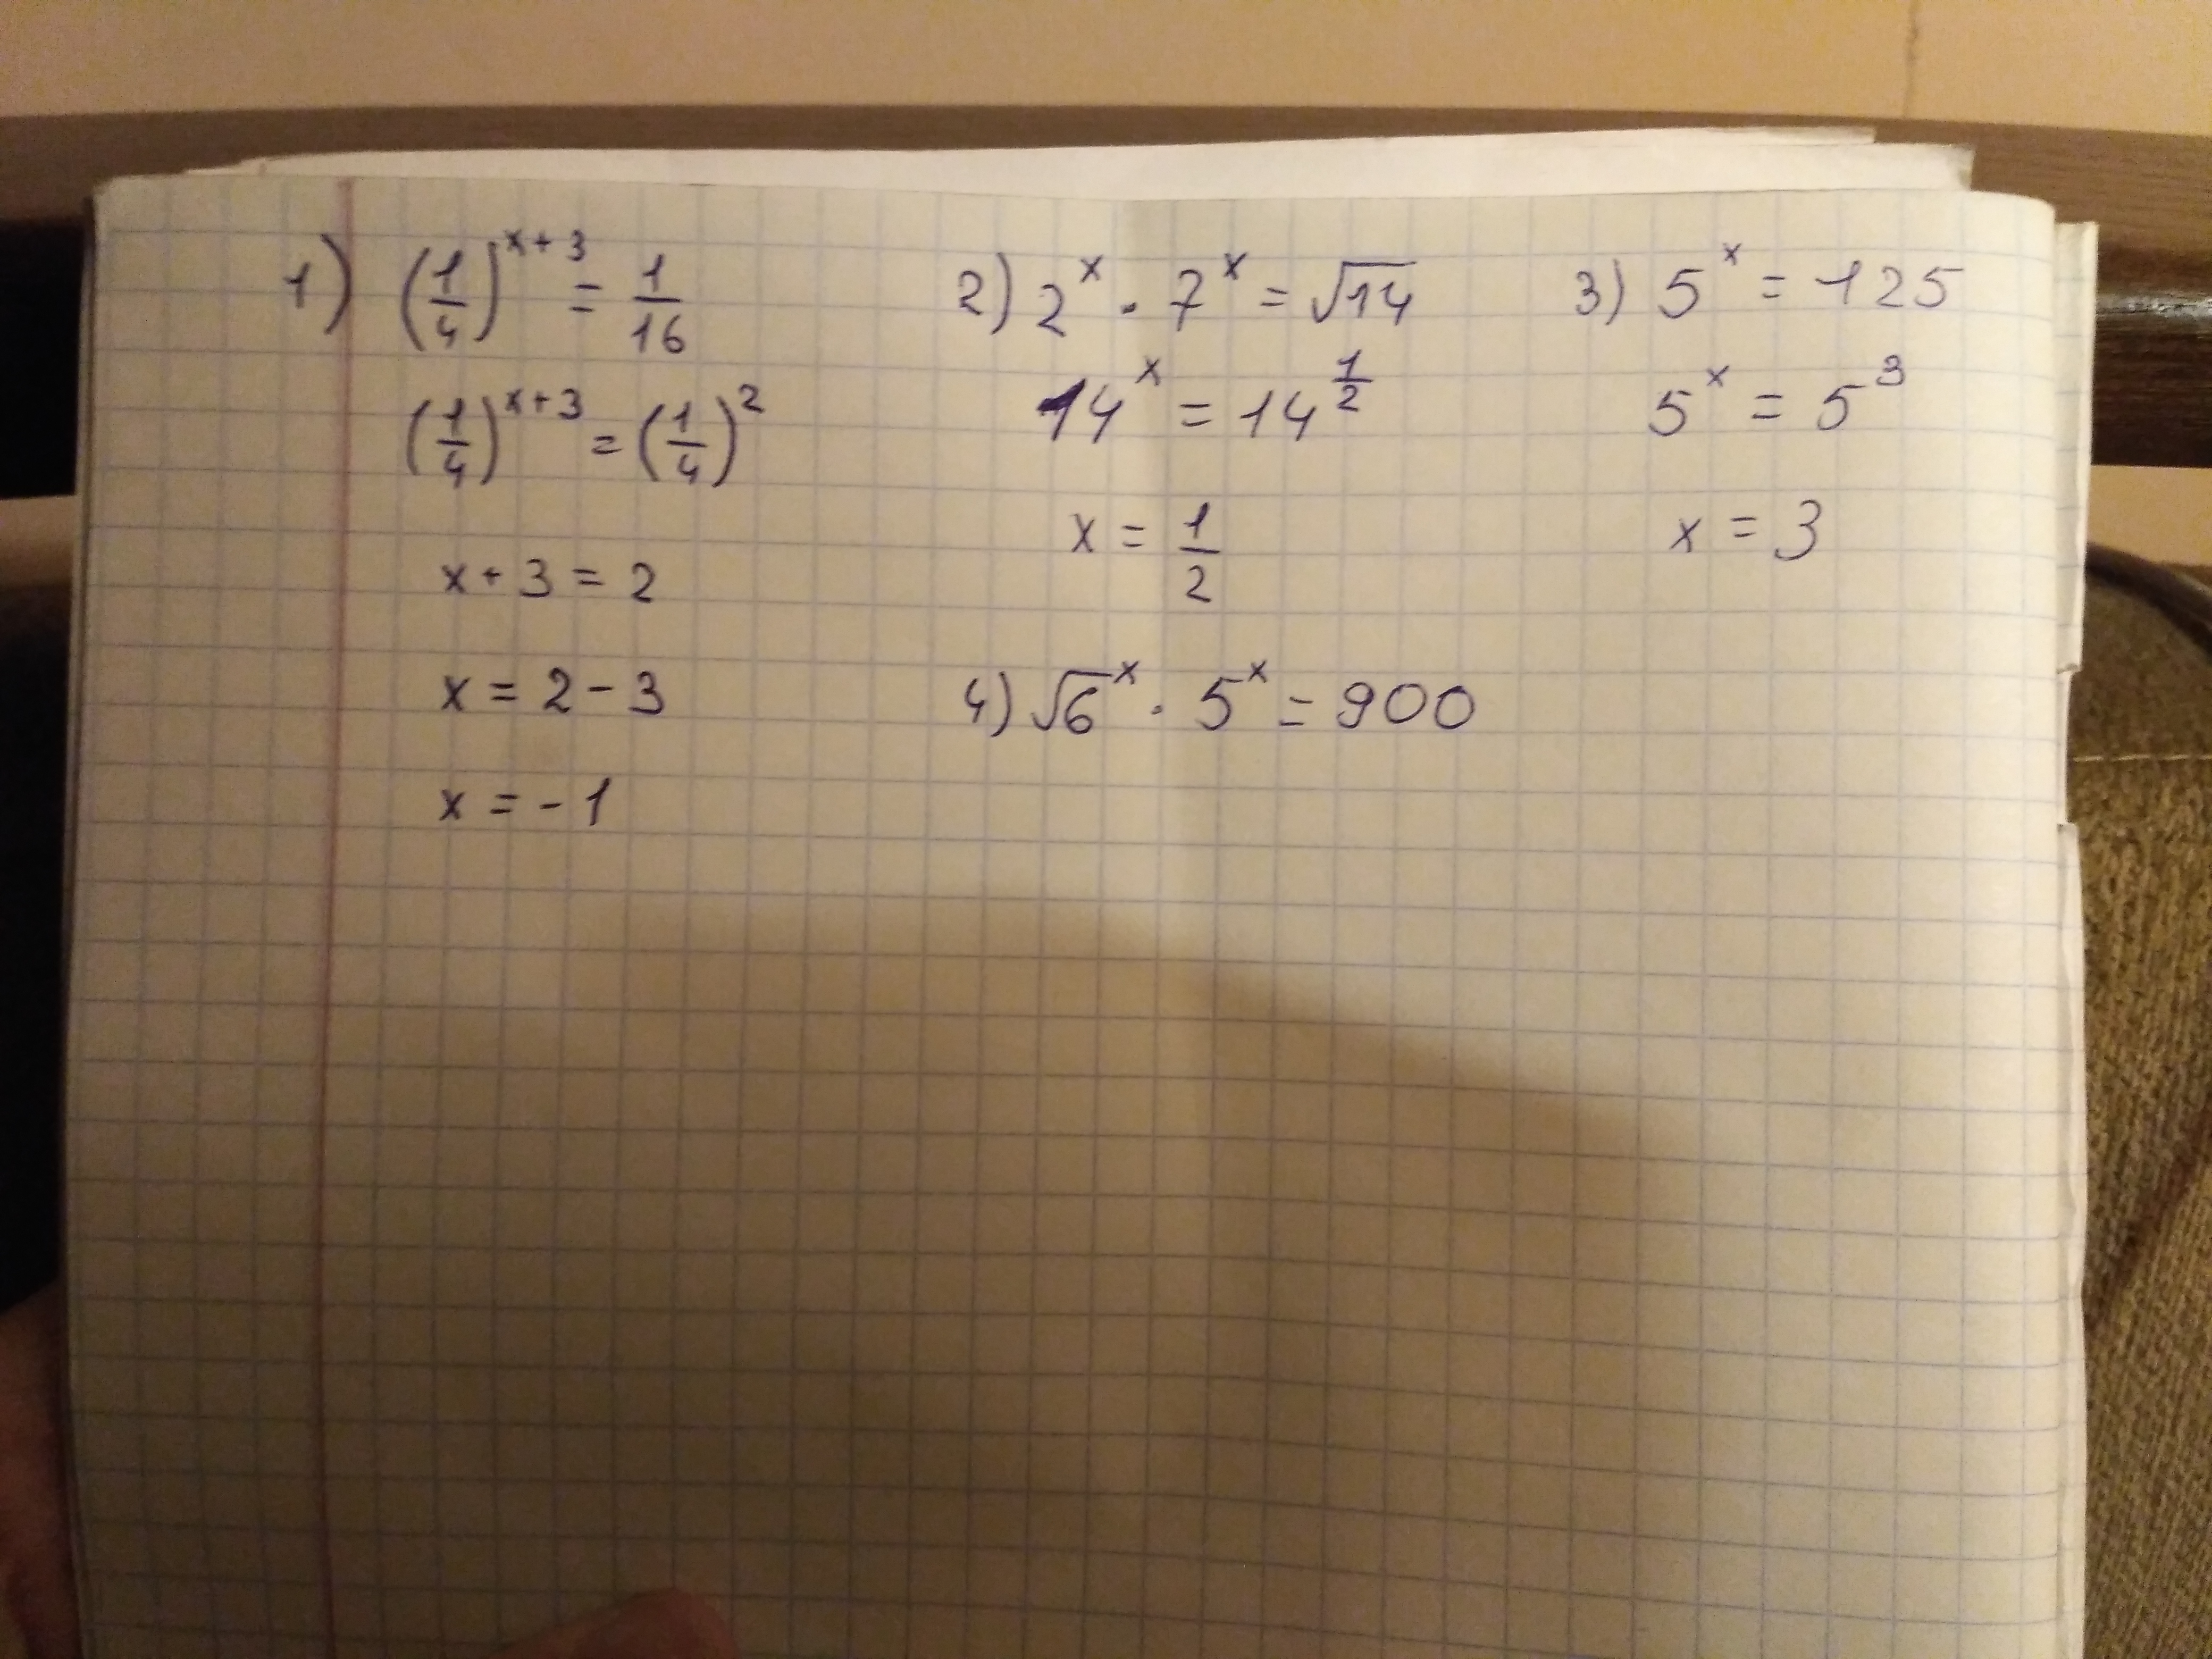 1) (1/4)^(x+3) = 1/16
(1/4)^(x+3) = (1/4)^2
x + 3 = 2
x = 2 - 3
x = - 1
2) 2^x · 7^x = √14
14^x = 14^(1/2)
x = 1/2
3) 5^x = 125
5^x = 5^3
x = 3
4) √6^x · 5^x = 900